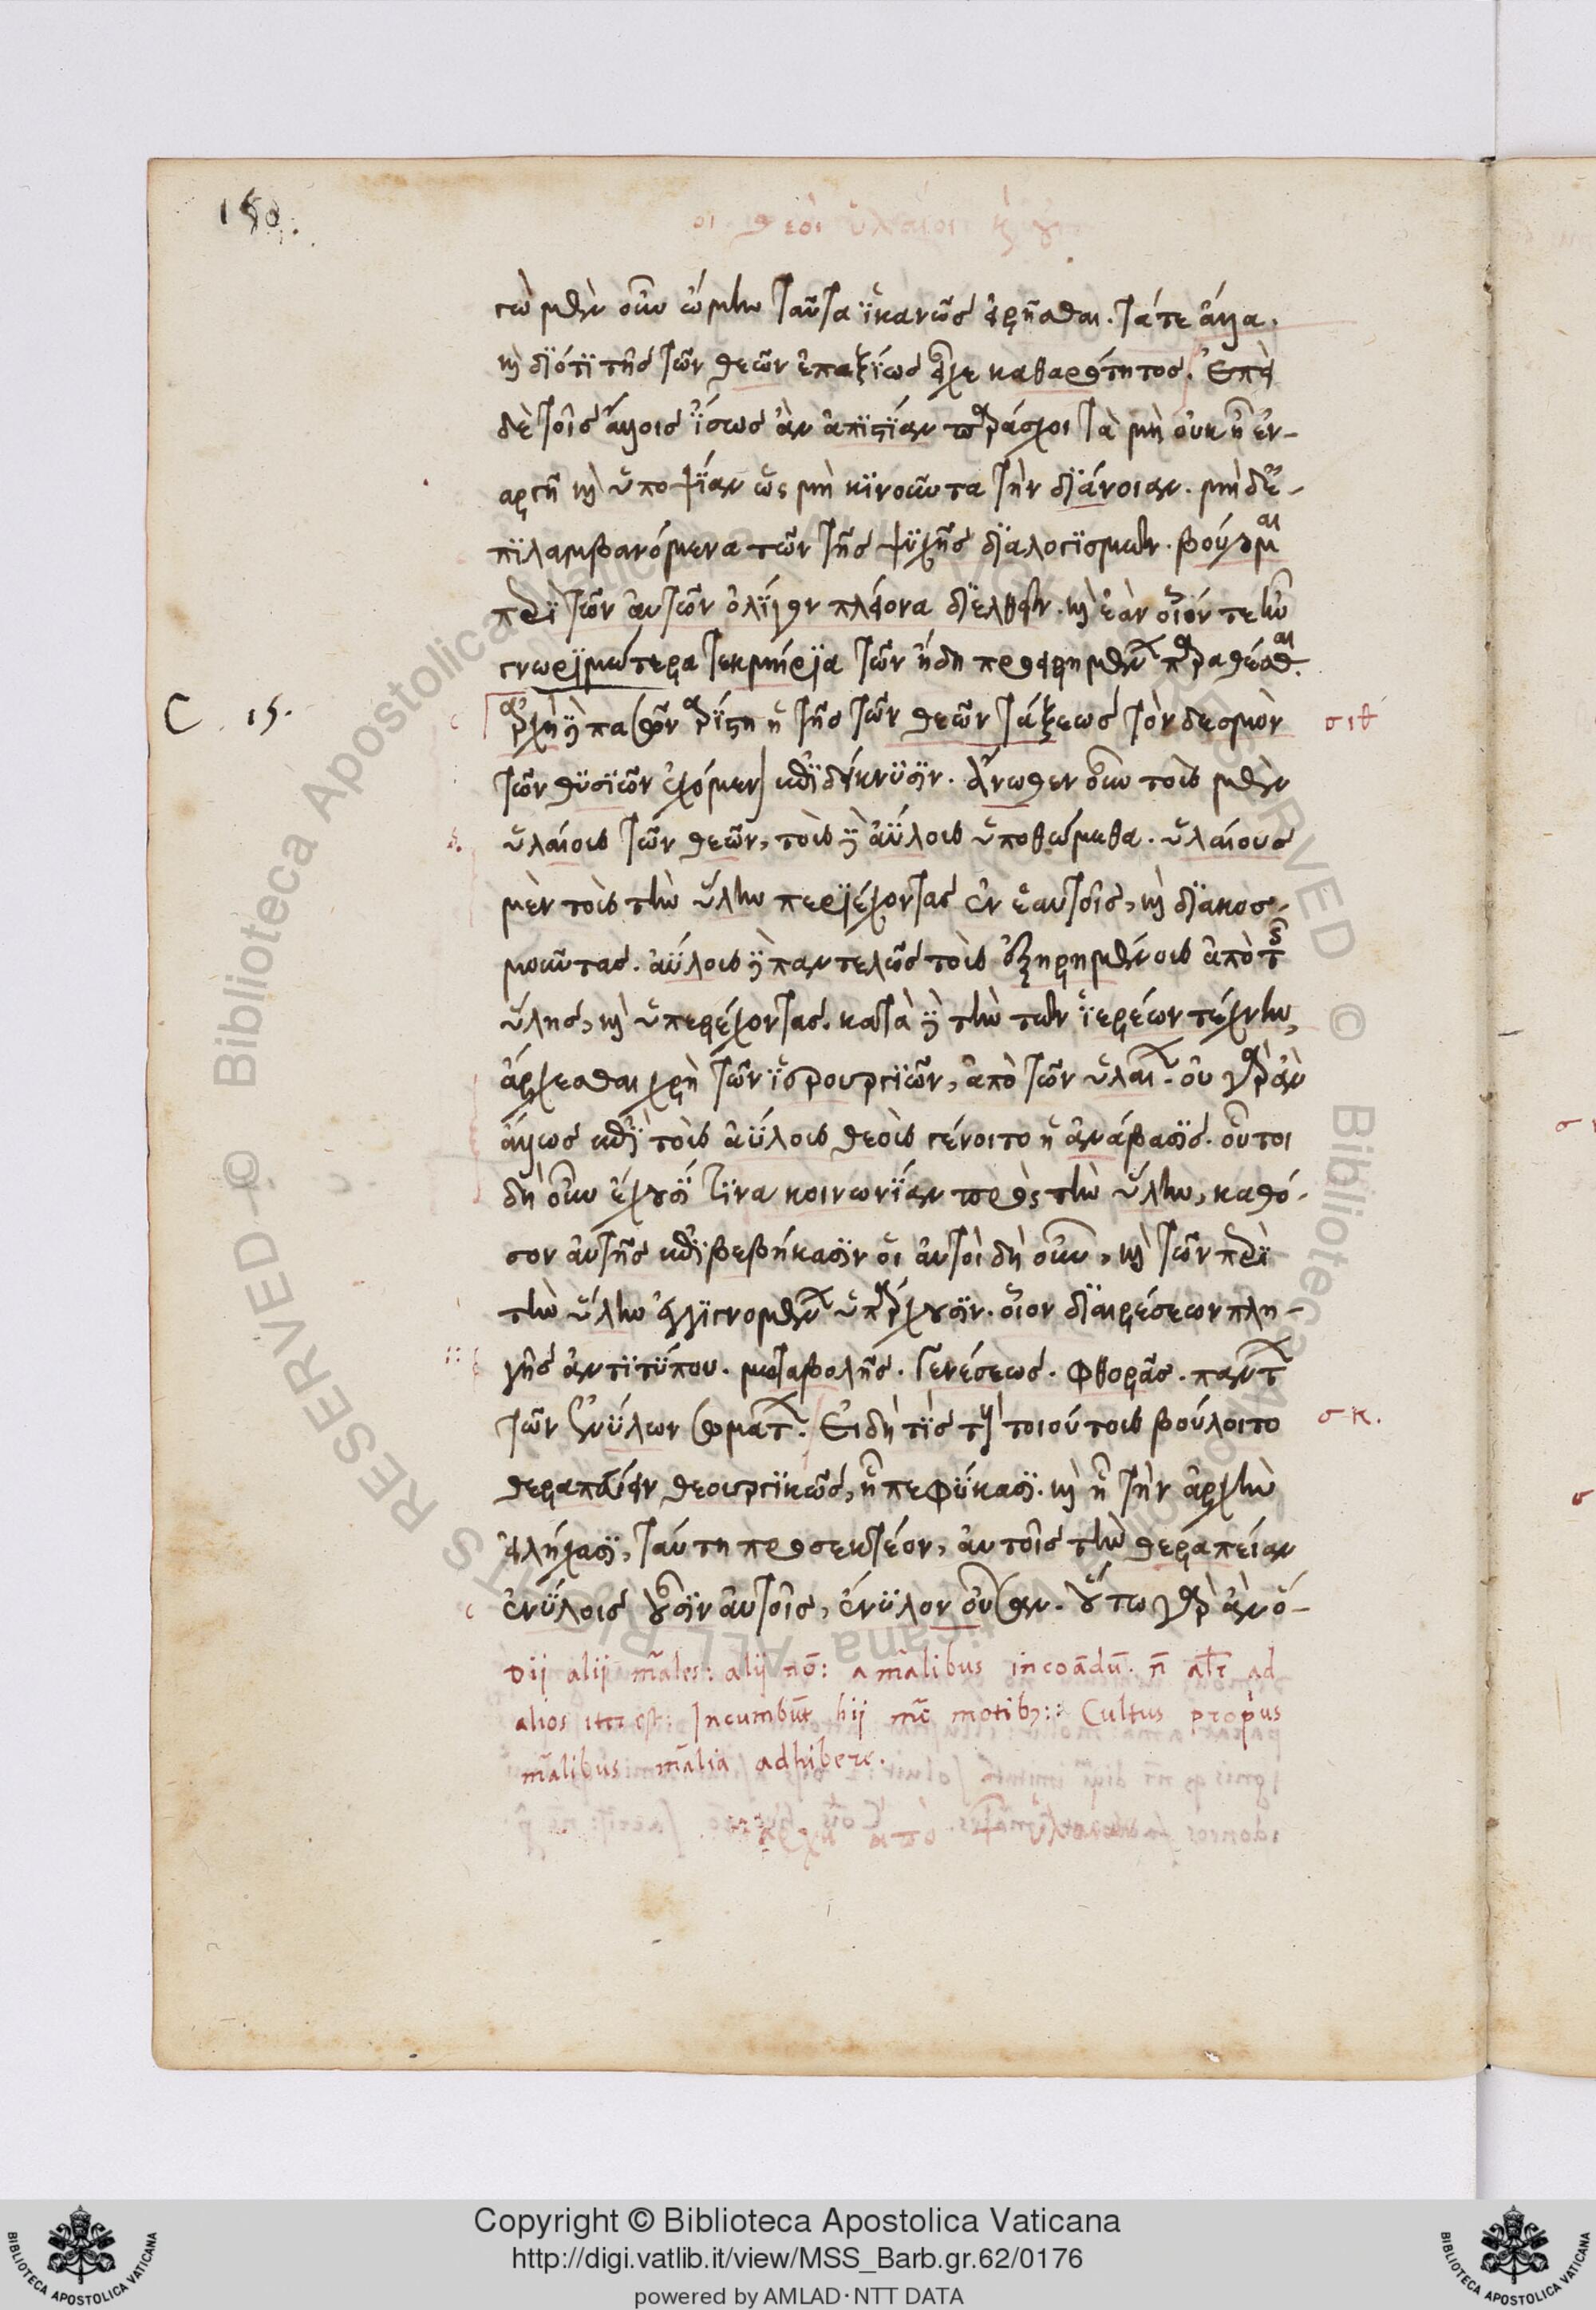 150.
οἱ θεοὶ ὑλαῖοι
γὼ μὲν οὖν ᾤμην ταῦτα ἱκανῶς εἰρῆσθαι. τά τε ἄλλα.
καὶ διότι τῆς τῶν θεῶν ἐπαξίως εἶχε καθαρότητος. Ἐπεὶ
δὲ τοῖς ἄλλοις ἴσως ἂν ἀπιστίαν παράσχοι τὰ μὴ οὐκ ᾖ ἐν-
αργῆ καὶ ὑποψίαν ὡς μὴ κινοῦντα τὴν διάνοιαν. μὴ δὲ ἐ-
πιλαμβανόμενα τῶν τῆς ψυχῆς διαλογισμῶν. βούλομαι
περὶ τῶν αὐτῶν ὀλίγον πλείονα διελθεῖν. καὶ ἐὰν οἷόν τε ἦν
γνωριμώτερα τεκμήρια τῶν ἤδη προειρημένων παραθέσθαι.
C 15.
ἀρχὴ δὲ πασῶν ἀρίστη ἡ τῆς τῶν θεῶν τάξεως τὸν δεσμὸν
σιθ
τῶν θυσιῶν ἐχόμεν ἐπιδείκνυσιν. Ἄνωθεν οὖν τοὺς μὲν
ὑλαίους τῶν θεῶν, τοὺς δὲ ἀΰλους ὑποθώμεθα. ὑλαίους
μὲν τοὺς τὴν ὕλην περιέχοντας ἐν ἑαυτοῖς, καὶ διακοσ-
μοῦντας. ἀΰλους δὲ παντελῶς τοὺς ἐξῃρημένους ἀπὸ τῆς
ὕλης, καὶ ὑπερέχοντας. κατὰ δὲ τὴν τῶν ἱερέων τέχνην,
ἄρχεσθαι χρὴ τῶν ἱερουργιῶν, ἀπὸ τῶν ὑλαίων. οὐ γὰρ ἂν
ἄλλως ἐπὶ τοὺς ἀΰλους θεοὺς γένοιτο ἡ ἀνάβασις. οὗτοι
δὴ οὖν ἔχουσι τινα κοινωνίαν πρὸς τὴν ὕλην, καθό-
σον αὐτῆς ἐπιβεβήκασιν οἱ αὐτοὶ δὴ οὖν, καὶ τῶν περὶ
τὴν ὕλην ἐγγιγνομένων ὑπάρχουσιν. οἷον διαιρέσεων πλη-
γῆς ἀντιτύπου. μεταβολῆς. Γενέσεως. φθορᾶς. πάντων
τῶν ἐνύλων σωμάτων. Εἰ δή τις τοὺς τοιούτους βούλοιτο
σκ.
θεραπεύειν θεουργικῶς, ᾗ πεφύκασι. καὶ ᾗ τὴν ἀρχὴν
εἰλήχασι, ταύτῃ προσεκτέον, αὐτοῖς τὴν θεραπείαν
ἐνύλοις οὖσιν αὐτοῖς, ἔνυλον οὖσαν. οὕτω γὰρ ἂν ὅ-
Dij alij māles: alij nō: a mālibus incoādū. n̄ alr ad
alios iter est: Incumbūt hij mē motibꝫ: Cultus propus
mālibus mālia adhibere.
Copyright © Biblioteca Apostolica Vaticana
http://digi.vatlib.it/view/MSS_Barb.gr.62/0176
powered by AMLAD · NTT DATA
BIBLIOTECA APOSTOLICA VATICANA
BIBLIOTECA APOSTOLICA VATICANA